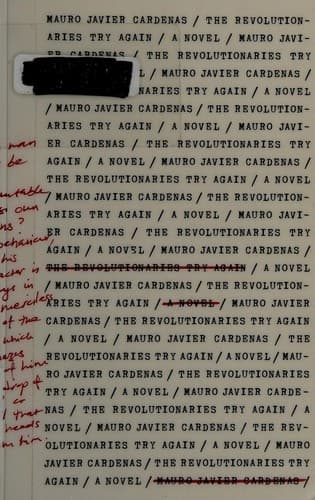 MAURO JAVIER CARDENAS / THE REVOLUTION-
ARIES TRY AGAIN / A NOVEL / MAURO JAVI-
ER CARDENAS / THE REVOLUTIONARIES TRY
/ MAURO JAVIER CARDENAS /
NARIES TRY AGAIN / A NOVEL
/ MAURO JAVIER CARDENAS / THE REVOLUTION-
ARIES TRY AGAIN / A NOVEL / MAURO JAVI-
ER CARDENAS / THE REVOLUTIONARIES TRY
AGAIN / A NOVEL / MAURO JAVIER CARDENAS /
THE REVOLUTIONARIES TRY AGAIN / A NOVEL
/ MAURO JAVIER CARDENAS / THE REVOLUTION-
ARIES TRY AGAIN / A NOVEL / MAURO JAVI-
ER CARDENAS / THE REVOLUTIONARIES TRY
AGAIN / A NOVEL / MAURO JAVIER CARDENAS /
THE REVOLUTIONARIES TRY AGAIN / A NOVEL
/ MAURO JAVIER CARDENAS / THE REVOLUTION-
ARIES TRY AGAIN / A NOVEL / MAURO JAVIER
CARDENAS / THE REVOLUTIONARIES TRY AGAIN
/ A NOVEL / MAURO JAVIER CARDENAS / THE
REVOLUTIONARIES TRY AGAIN / A NOVEL / MAU-
RO JAVIER CARDENAS / THE REVOLUTIONARIES
TRY AGAIN / A NOVEL / MAURO JAVIER CARDE-
NAS / THE REVOLUTIONARIES TRY AGAIN / A
NOVEL / MAURO JAVIER CARDENAS / THE REV-
OLUTIONARIES TRY AGAIN / A NOVEL / MAURO
JAVIER CARDENAS / THE REVOLUTIONARIES TRY
AGAIN / A NOVEL / MAURO JAVIER CARDENAS /
man
be
own
his
in
of the
which
of him
of
or
that
heads
him.